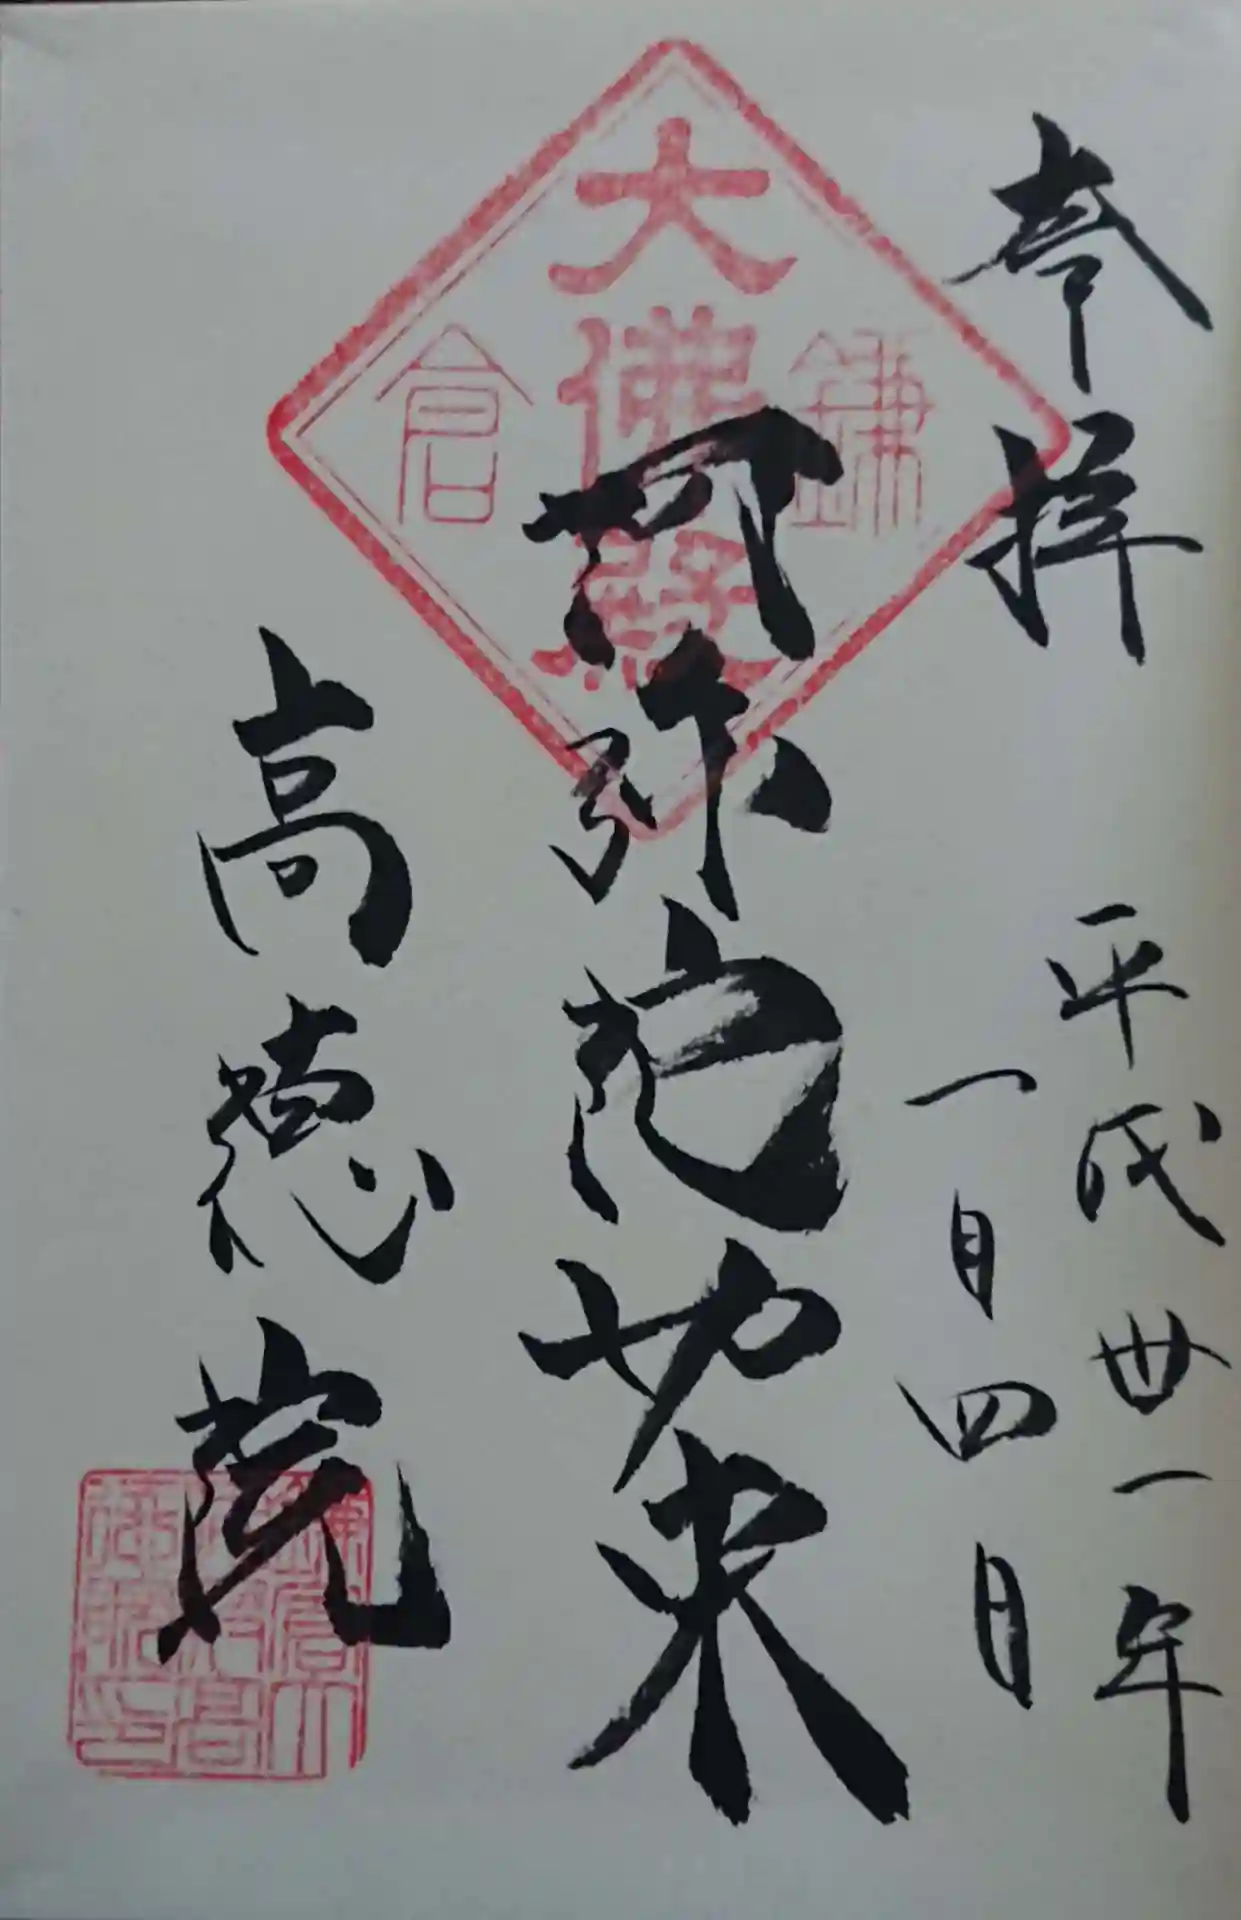 奉拝
平成丗一年
一月四日
大佛殿
鎌倉
阿弥陀如来
高徳院